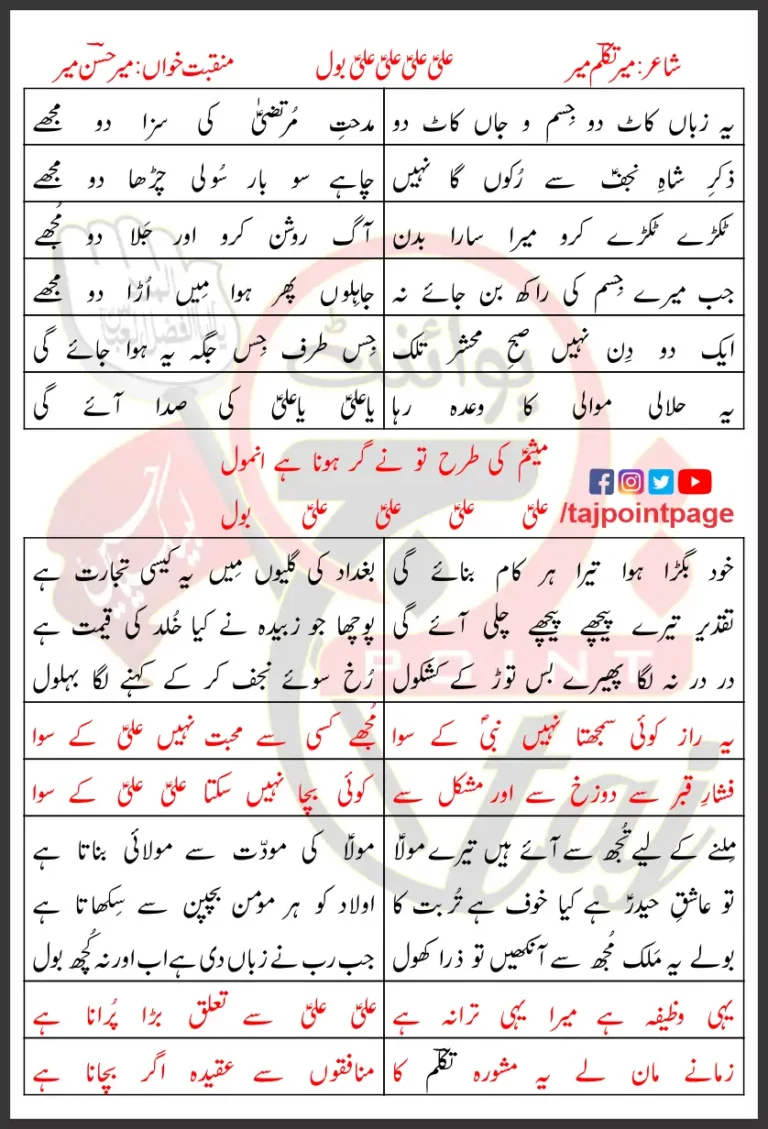 شاعر: میر تکلمؔ میر علیؑ علیؑ علیؑ علیؑ بول منقبت خواں: میر حسنؔ میر
یہ زباں کاٹ دو جِسم و جاں کاٹ دو مدحتِ مُرتضیٰؑ کی سزا دو مجھے
ذکرِ شاہِ نجفؑ سے رُکوں گا نہیں چاہے سو بار سُولی چڑھا دو مجھے
ٹکڑے ٹکڑے کرو میرا سارا بدن آگ روشن کرو اور جَلا دو مُجھے
جب میرے جِسم کی راکھ بن جائے نہ جاہلوں پھر ہوا مِیں اُڑا دو مجھے
ایک دو دِن نہیں صبحِ محشر تلک جِس طرف جِس جگہ یہ ہوا جائے گی
یہ حلالی موالی کا وعدہ رہا یاعلیؑ یاعلیؑ کی صدا آئے گی
میثمؑ کی طرح تو نے گر ہونا ہے انمول
علیؑ علیؑ علیؑ علیؑ بول
/tajpointpage
خود بگڑا ہوا تیرا ہر کام بنائے گی بغداد کی گلیوں مِیں یہ کیسی تجارت ہے
تقدیر تیرے پیچھے پیچھے چلی آئے گی پوچھا جو زبیدہ نے کیا خُلد کی قیمت ہے
در در نہ لگا پھیرے بس توڑ کے کشکول رُخ سوئے نجف کر کے کہنے لگا بہلول
یہ راز کوئی سمجھتا نہیں نبیؐ کے سوا مُجھے کسی سے محبت نہیں علیؑ کے سوا
فشارِ قبر سے دوزخ سے اور مشکل سے کوئی بچا نہیں سکتا علیؑ علیؑ کے سوا
مِلنے کے لیے تُجھ سے آئے ہیں تیرے مولاؑ مولاؑ کی مودّت سے مولائی بناتا ہے
تو عاشقِ حیدرؑ ہے کیا خوف ہے تُربت کا اولاد کو ہر مومن بچپن سے سِکھاتا ہے
بولے یہ مَلک مُجھ سے آنکھیں تو ذرا کھول جب رب نے زباں دی ہے اب اور نہ کُچھ بول
یہی وظیفہ ہے میرا یہی ترانہ ہے علیؑ علیؑ سے تعلق بڑا پُرانا ہے
زمانے مان لے یہ مشورہ تکلمؔ کا منافقوں سے عقیدہ اگر بچانا ہے
پوائنٹ
POINT
taj